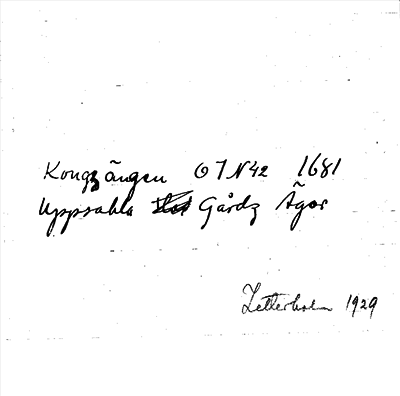 Kongzängen O7 N42 1681
Uppsahla Gårdz Ägor
Zetterholm 1929